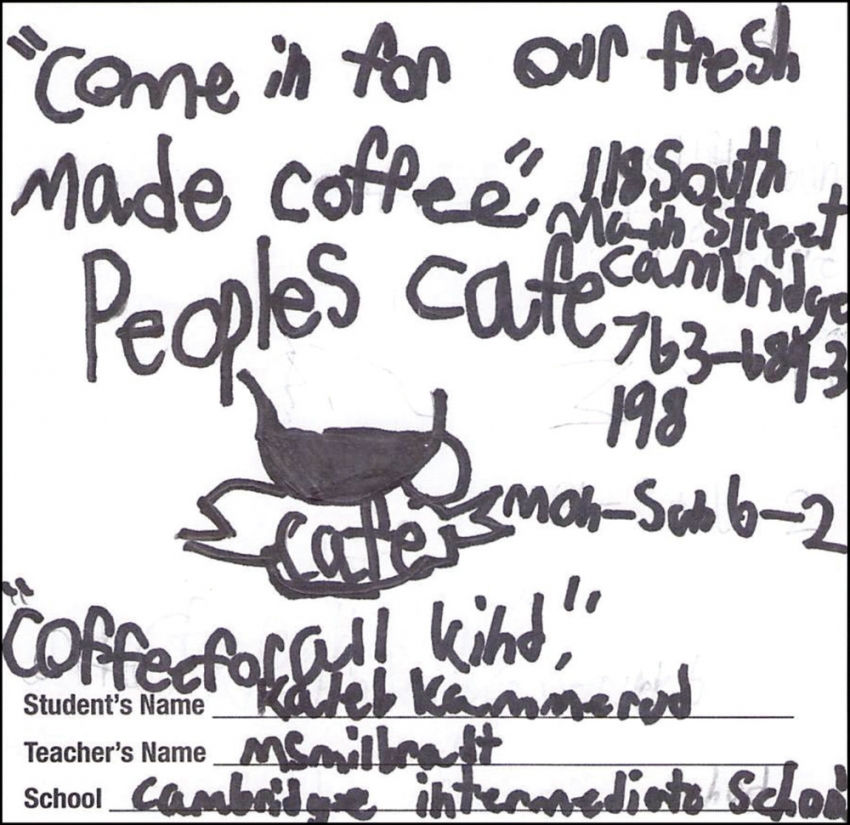 "Come in for our fresh
made coffee"
118 South
Main Street
Cambridge
763-689-3
198
Peoples Cafe
Cafe
Mon-Sun 6-2
"Coffee for all kind,"
Student's Name Kaleb Kammerud
Teacher's Name MsMilbradt
School Cambridge intermediate School